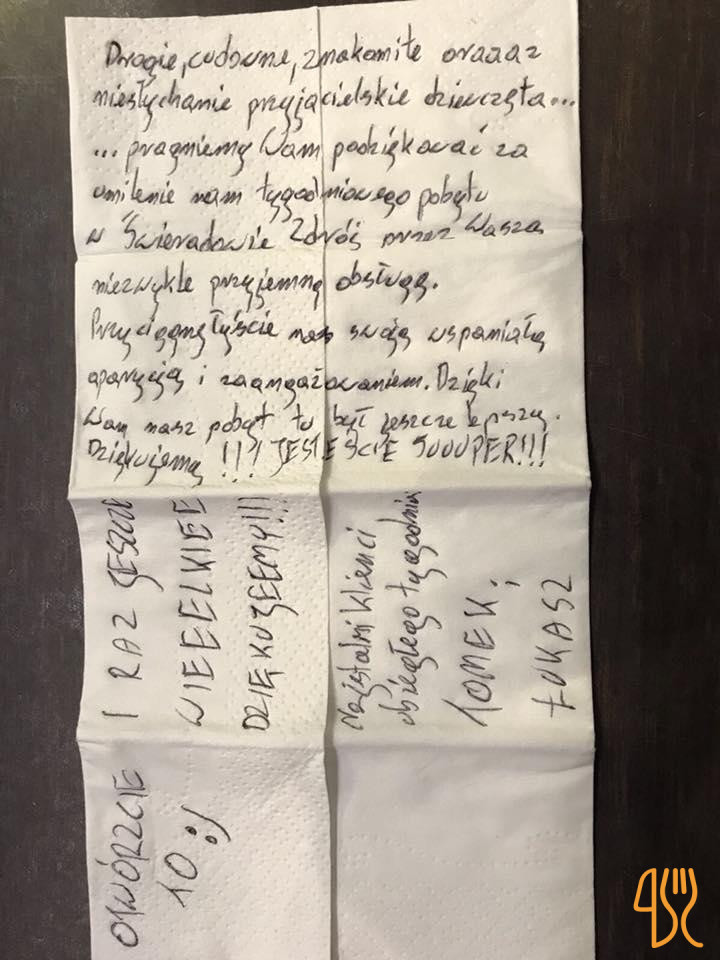 Drogie, cudowne, znakomite orazaz
niesłychanie przyjacielskie dziewczęta...
...pragniemy Wam podziękować za
umilenie nam tygodniowego pobytu
w Świeradowie Zdrój przez Waszą
niezwykle przyjemną obsługę.
Przyciągnęłyście nas swoją wspaniałą
aparycją i zaangażowaniem. Dzięki
Wam nasz pobyt tu był jeszcze lepszy.
Dziękujemy !!! JESTEŚCIE SUUUPER!!!
I RAZ JESZCZE
WIEEELKIEE
DZIĘKUJEEMY!!!
Najstalni klienci
ubiegłego tygodnia
TOMEK i
ŁUKASZ
OTWÓRZCIE
10 :)